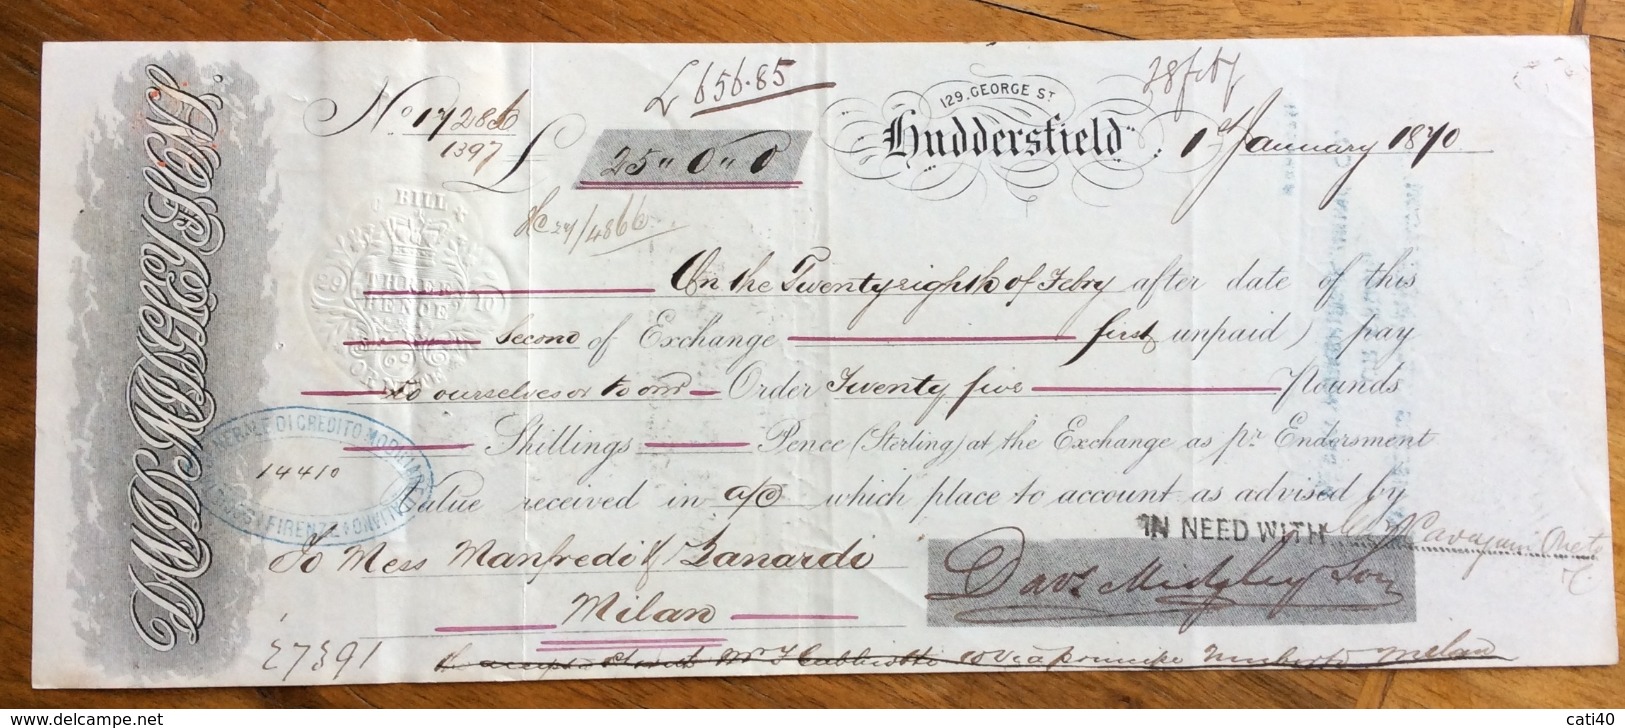 DAVD MIDGLEY & SONS.
No 17286
1397
£ 656.85
£ 25 " 0 " 0
129. GEORGE ST
Huddersfield, 1st January 1870
28 feby
27/4866
BILL
THREE
PENCE
On the Twenty eighth of Febry after date of this
Second of Exchange first unpaid) pay
to ourselves or to our Order Twenty five Pounds
Shillings Pence (Sterling) at the Exchange as pr. Endorsment
Value received in a/c which place to account as advised by
DI CREDITO MOBILIARE
FIRENZE
14410
IN NEED WITH
To Mess Manfredi & Zanardi
Milan
Davd. Midgley & Sons
27391
Milan
cati40